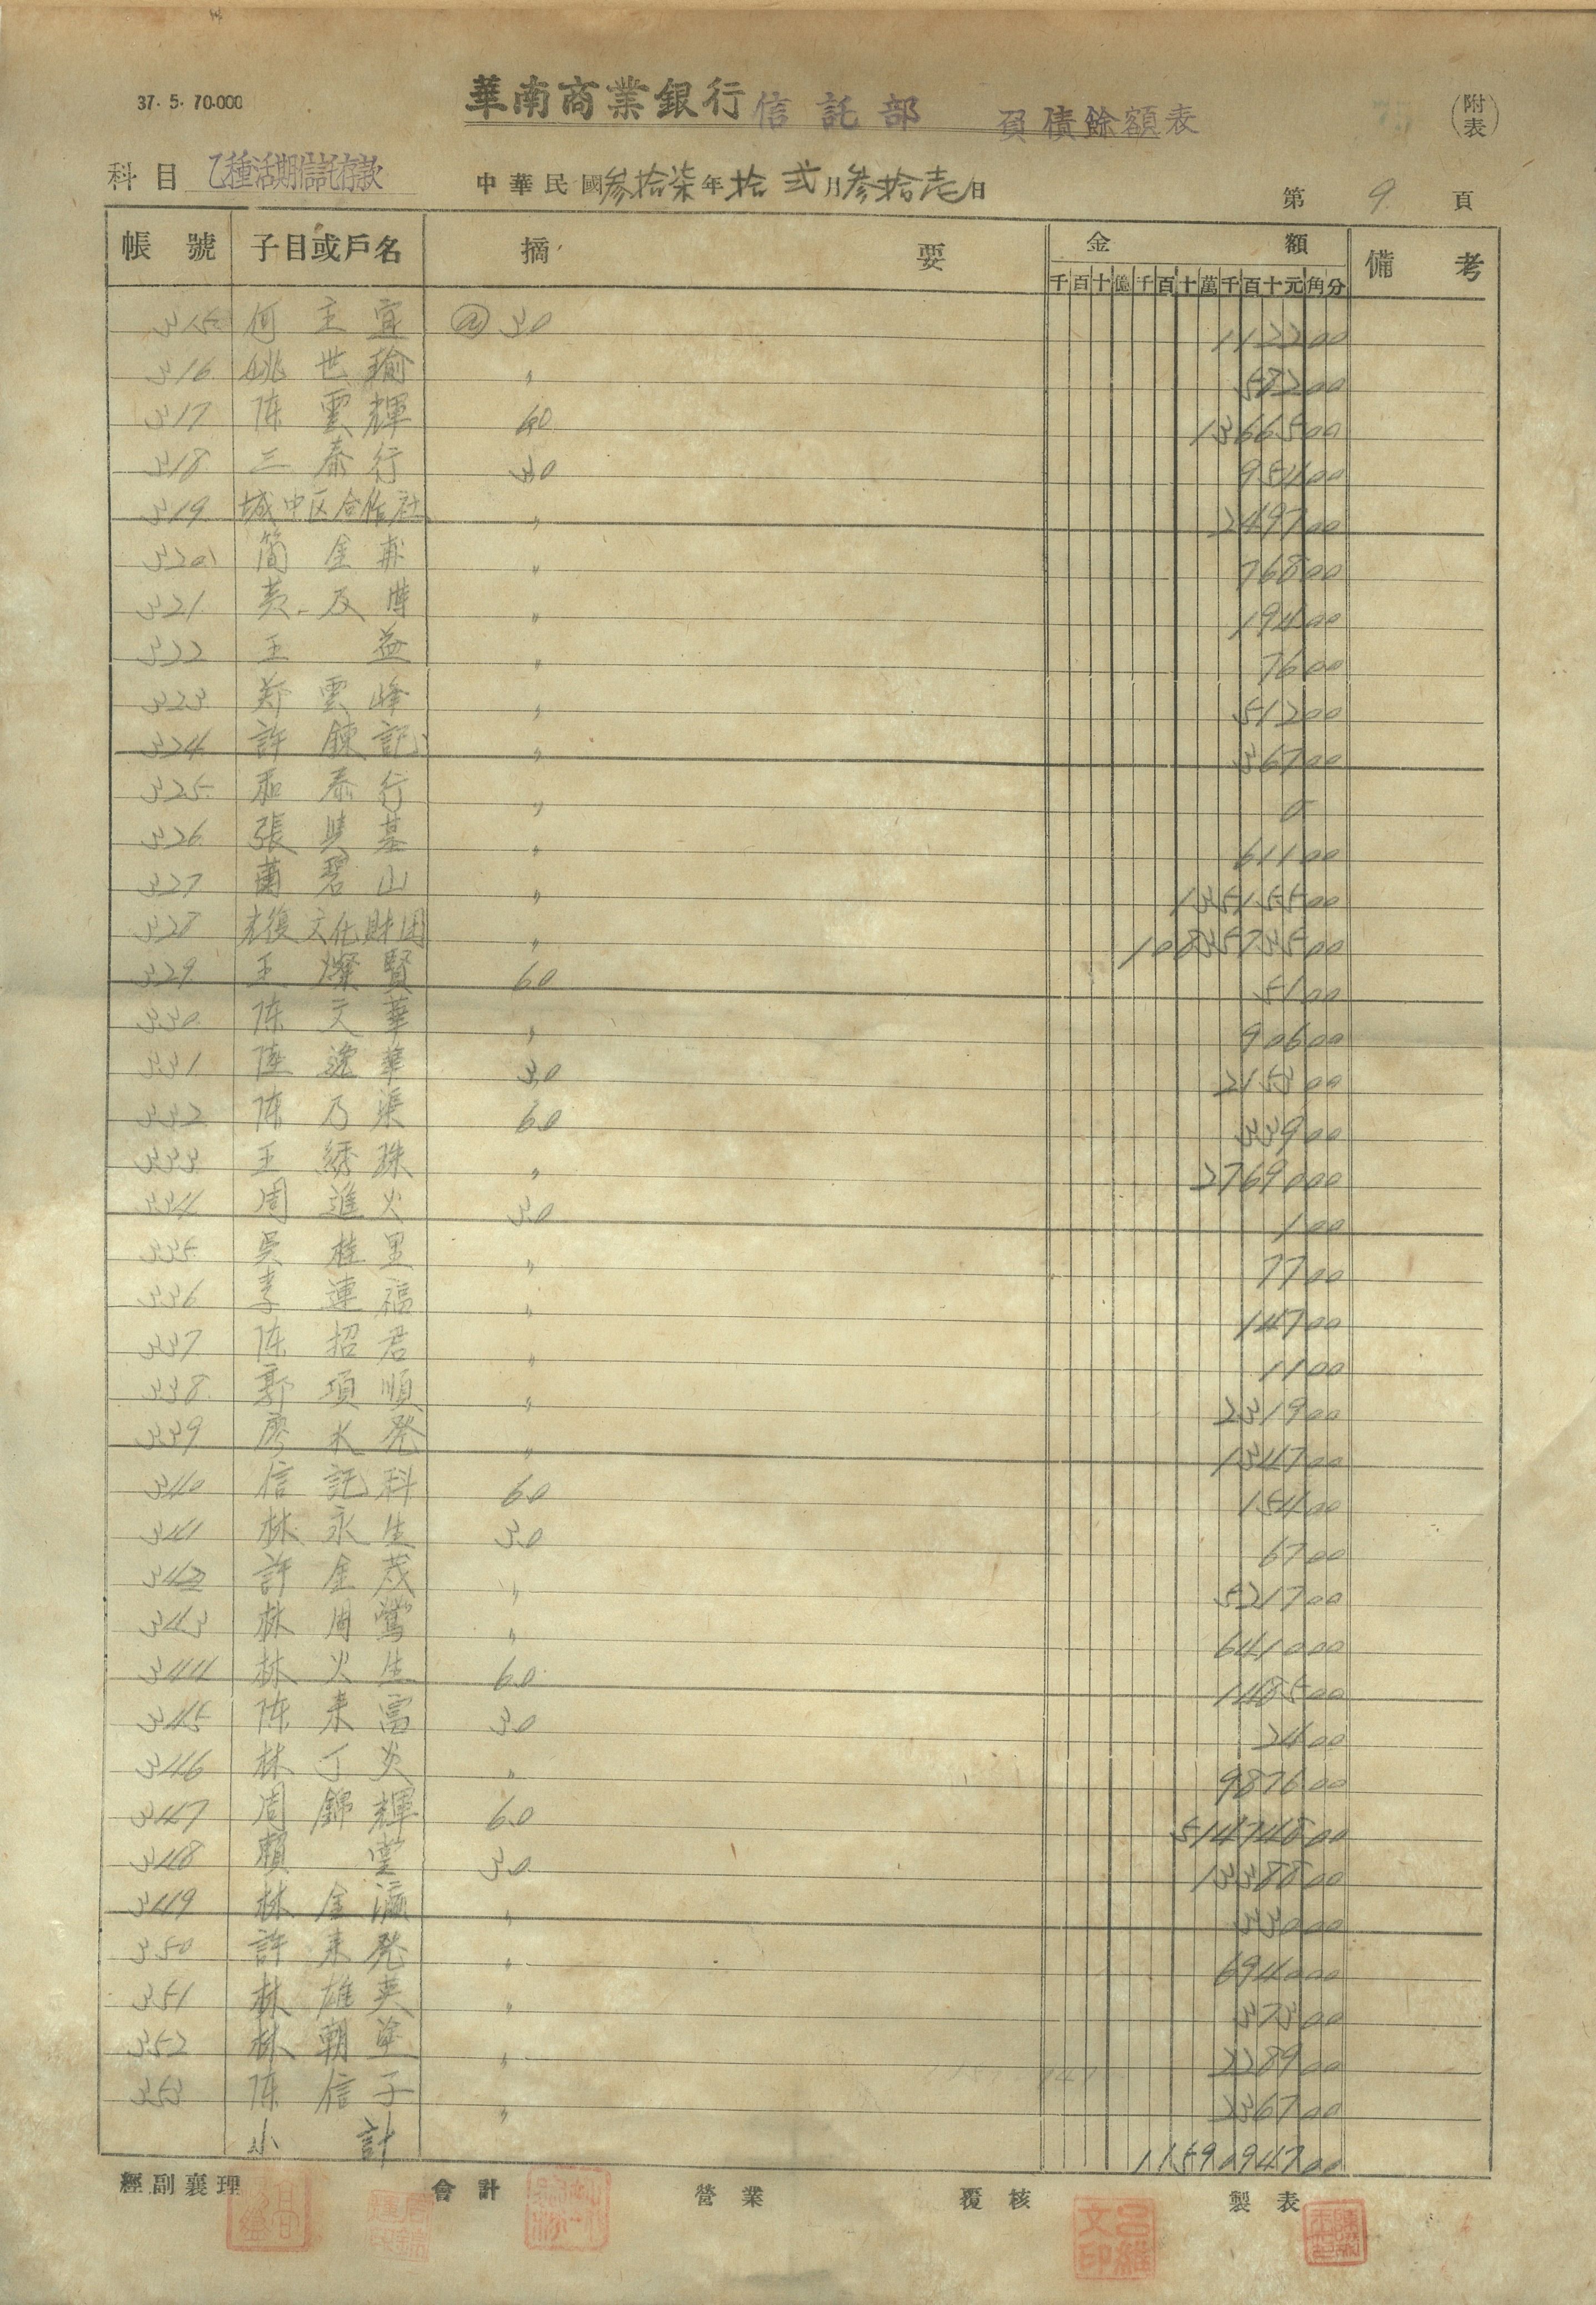 37. 5. 70.000
華南商業銀行信託部 負債餘額表
(附表)
科目 乙種活期信託存款 中華民國參拾柒年拾弍月參拾壱日 第 9 頁
帳號 子目或戶名 摘要 金額 備考
千百十億千百十萬千百十元角分
315 何主宜 @ 30 112200
316 姚世瑜 〃 58200
317 陈雲輝 60 1366500
318 三泰行 30 95400
319 城中区合作社 〃 249700
320 簡金甫 〃 76800
321 黄及時 〃 19400
322 王益 〃 7600
323 郑雲峰 〃 51200
324 許錬記 〃 36700
325 和泰行 〃 0
326 張興基 〃 61100
327 蘭碧山 〃 13515500
328 光復文化財団 〃 1083573500
329 王燦賢 60 5100
330 陈文華 〃 90600
331 陸逸華 30 215300
332 陈乃渠 60 33900
333 王綉珠 〃 2769000
334 周進火 30 100
335 吳桂里 〃 7700
336 李連福 〃 14700
337 陈招君 〃 1100
338 郭項順 〃 231900
339 廖水発 〃 134700
340 信託科 60 15400
341 林永生 30 6700
342 許金茂 〃 521700
343 林周鶯 〃 641000
344 林火生 60 148500
345 陈来富 30 2400
346 林丁炎 〃 987600
347 周錦輝 60 51474800
348 賴堂 30 1338800
349 林金瀛 〃 33000
350 許来発 〃 694000
351 林雄英 〃 37300
352 林朝塗 〃 228900
353 陈信子 〃 236700
小計 1159094700
經副襄理 會計 營業 覆核 製表